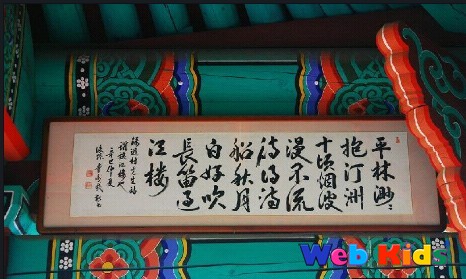 平林渺々
抱汀洲
十頃烟波
漫不流
待得滿
船秋月
白好吹
長笛過
江樓
辛巳仲夏
Web Kids